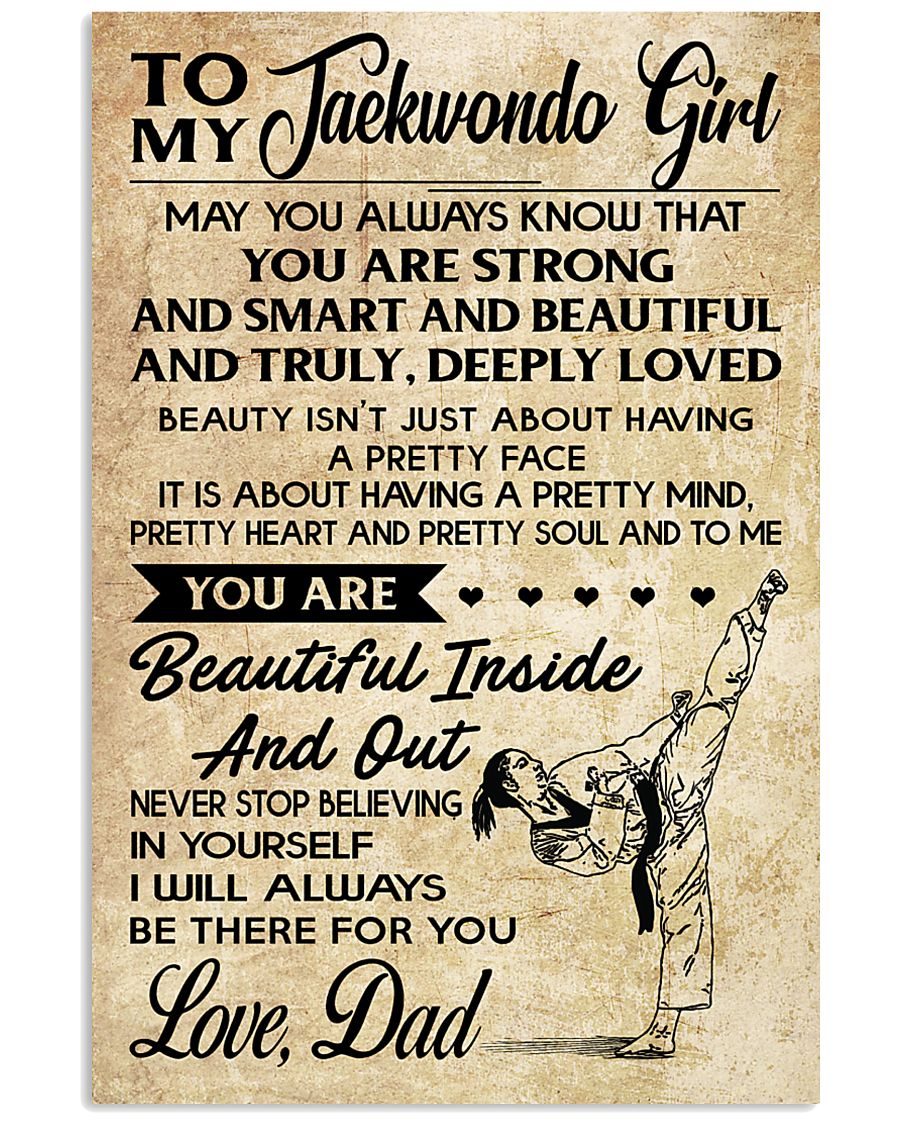 TO MY Taekwondo Girl
MAY YOU ALWAYS KNOW THAT
YOU ARE STRONG
AND SMART AND BEAUTIFUL
AND TRULY, DEEPLY LOVED
BEAUTY ISN'T JUST ABOUT HAVING
A PRETTY FACE
IT IS ABOUT HAVING A PRETTY MIND,
PRETTY HEART AND PRETTY SOUL AND TO ME
YOU ARE
Beautiful Inside
And Out
NEVER STOP BELIEVING
IN YOURSELF
I WILL ALWAYS
BE THERE FOR YOU
Love, Dad